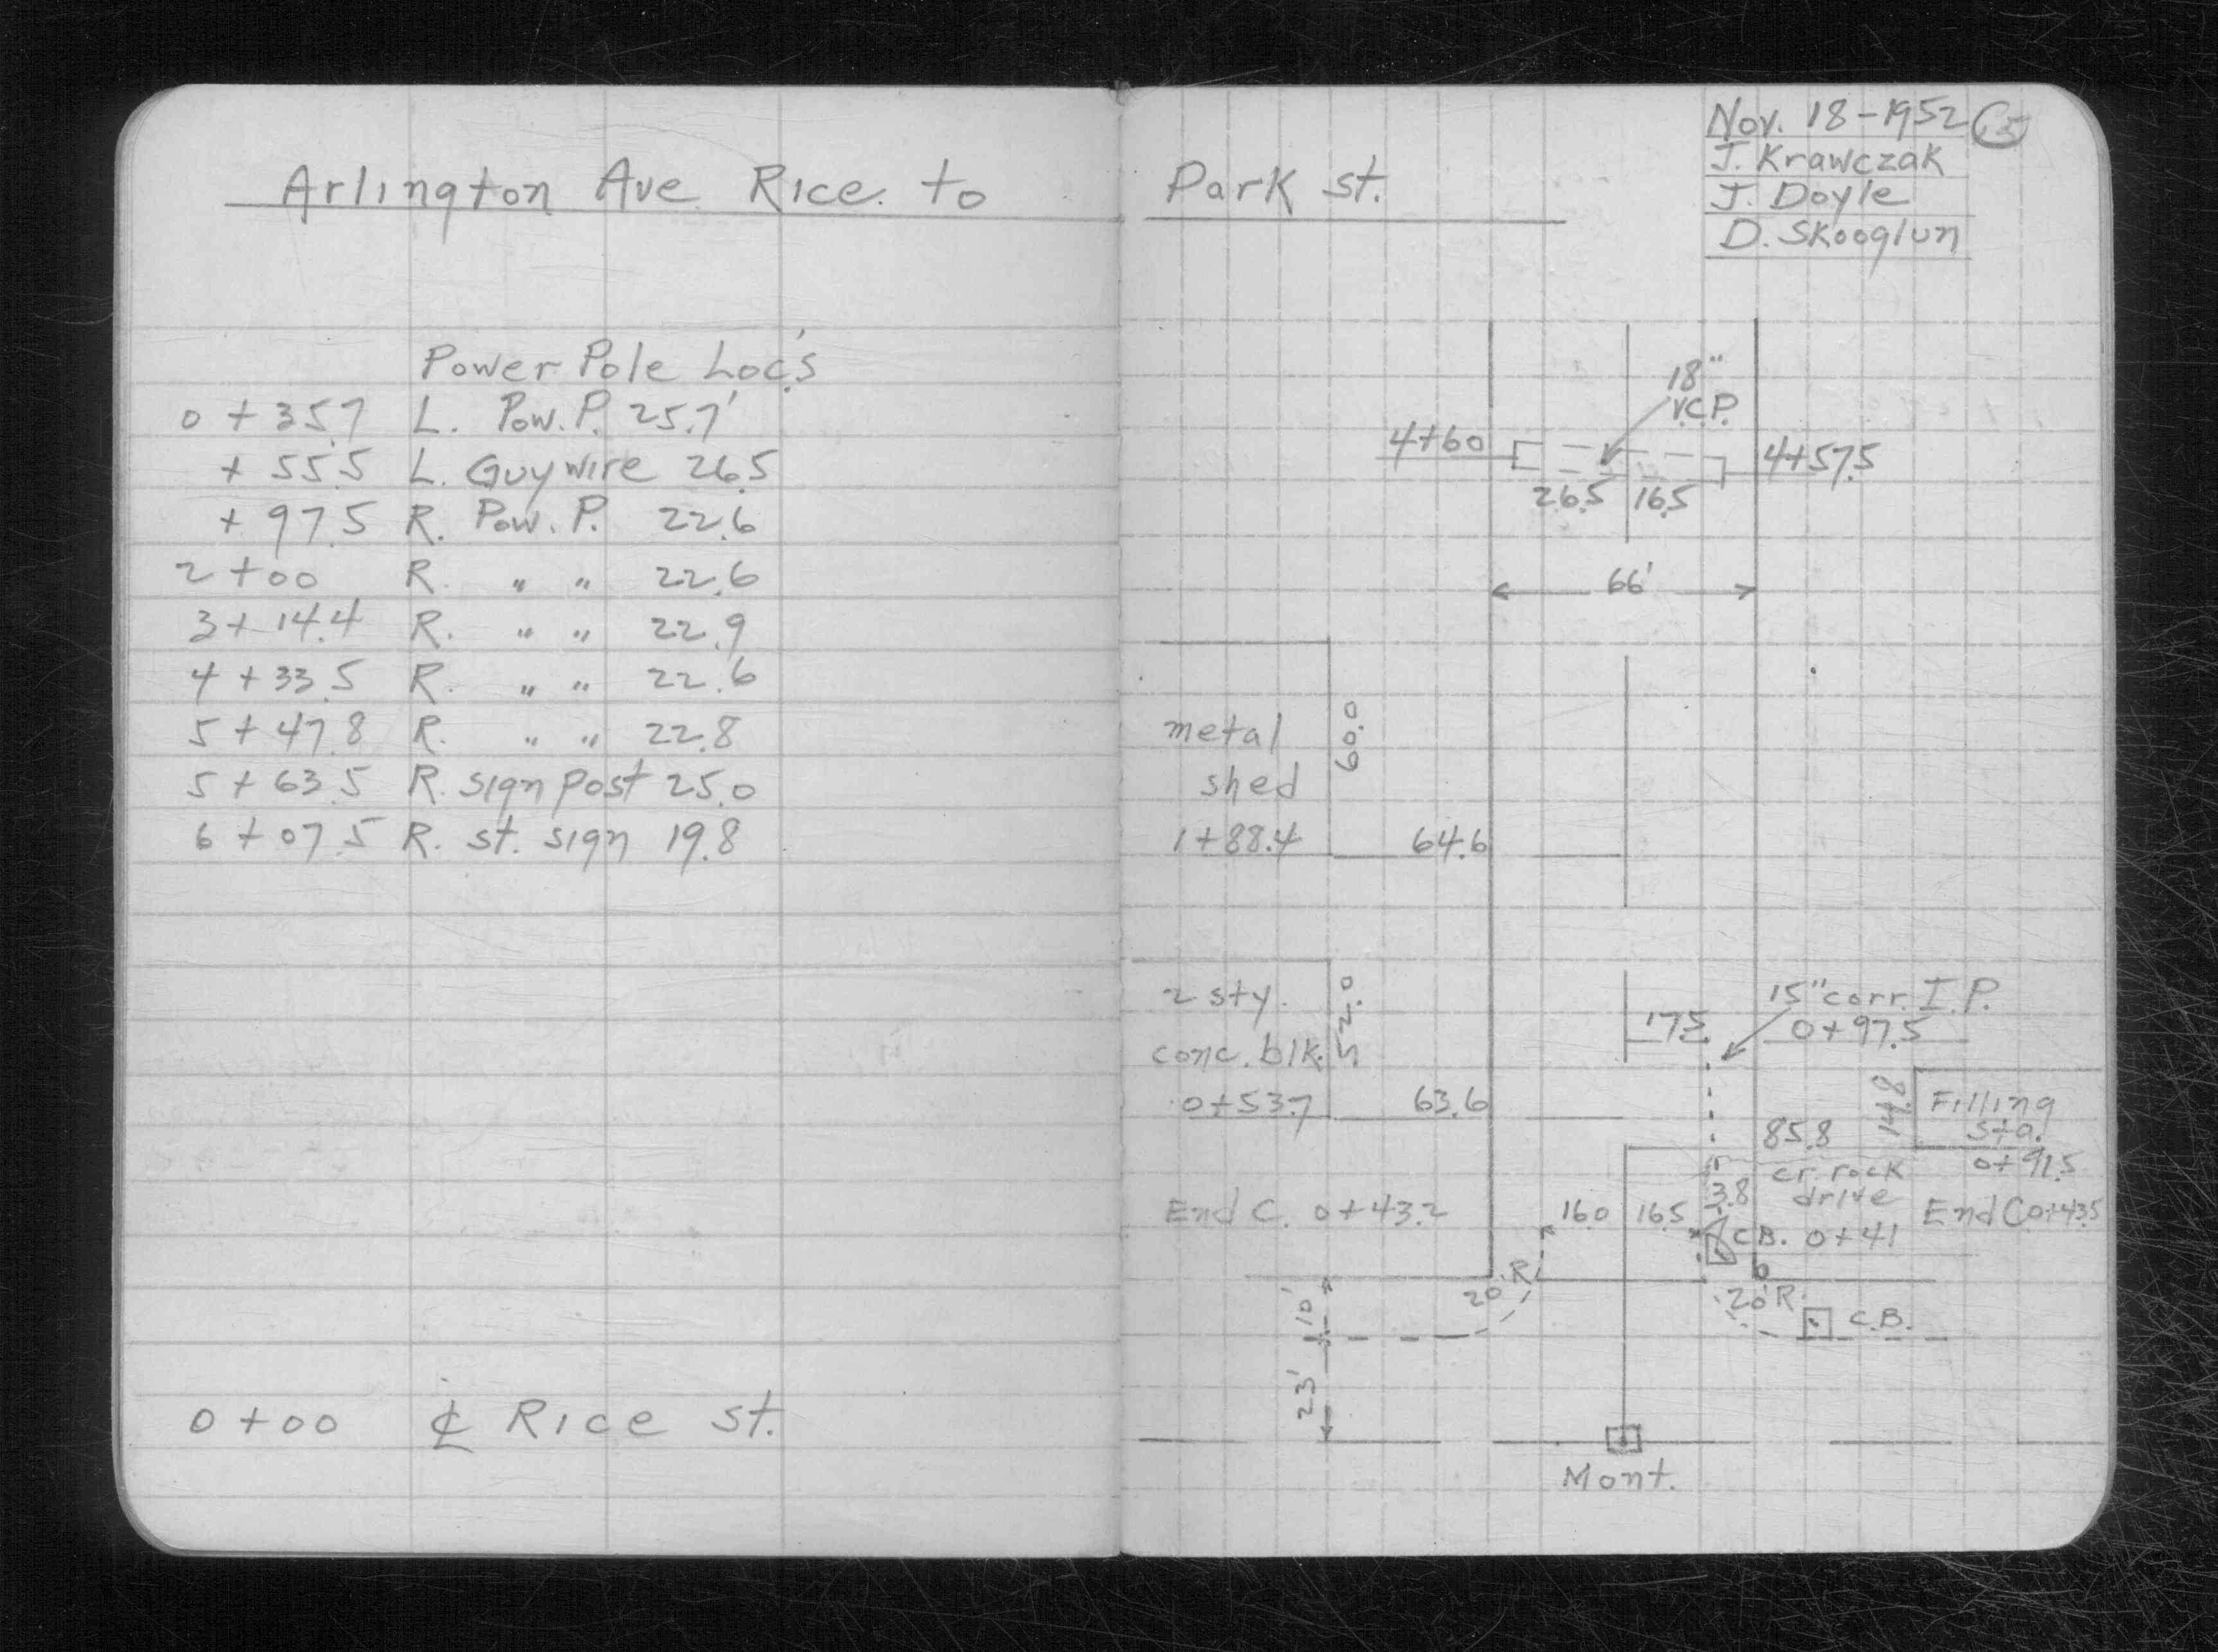 Arlington Ave Rice to Park st.
Nov. 18-1952
J. Krawczak
J. Doyle
D. Skooglun
Power Pole Loc's
0 + 35.7 L. Pow. P. 25.7'
+ 55.5 L. Guy wire 26.5
+ 97.5 R. Pow. P. 22.6
2 + 00 R. " " 22.6
3 + 14.4 R. " " 22.9
4 + 33.5 R. " " 22.6
5 + 47.8 R. " " 22.8
5 + 63.5 R. sign post 25.0
6 + 07.5 R. st. sign 19.8
0 + 00 ℄ Rice st.
18"
V.C.P.
4+60
4+57.5
26.5 16.5
66'
metal
shed
1+88.4
60.0
64.6
2 sty.
conc. blk.
0+53.7
52.0
63.6
15" corr. I.P.
17.5
0+97.5
14.8
Filling
sta.
0+91.5
85.8
cr. rock
drive
3.8
End C. 0+43.2
16.0 16.5
C.B. 0+41
End C 0+43.5
20' R.
20' R.
C.B.
10'
23'
Mont.